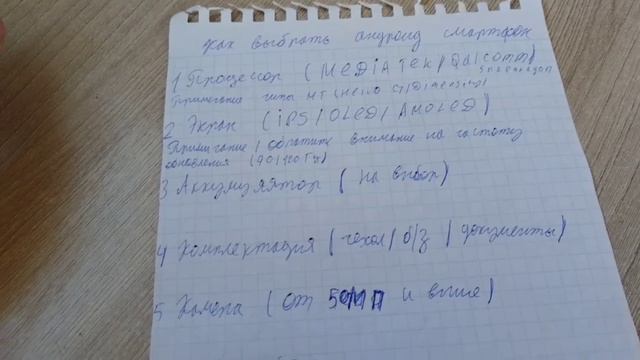 как выбрать андроид смартфон
1 Процессор (MEDIATEK/Qalcomm)
Snapdragon
Примечание чипы MT (Helio G/Dimensity)
2 Экран (iPS/OLED/AMOLED)
Примечание/обратите внимание на частоту
обновления (90/120 Гц)
3 Аккумулятор (на выбор)
4 Комплектация (чехол/б/з/документы)
5 Камера (от 50МП и выше)